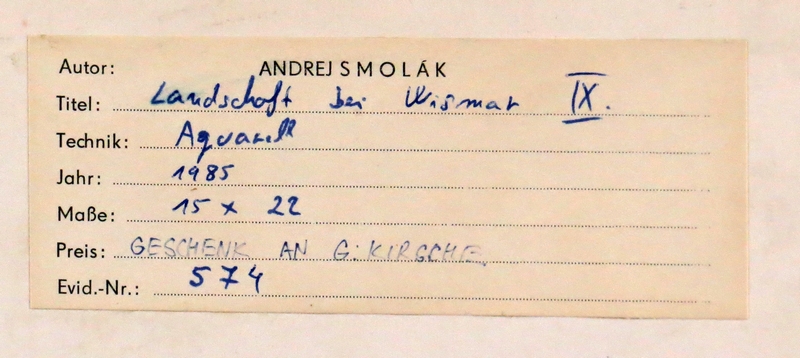 Autor: ANDREJ SMOLÁK
Titel: Landschaft bei Wismar IX.
Technik: Aquarell
Jahr: 1985
Maße: 15 x 22
Preis: GESCHENK AN G. KIRSCHE
Evid.-Nr.: 574